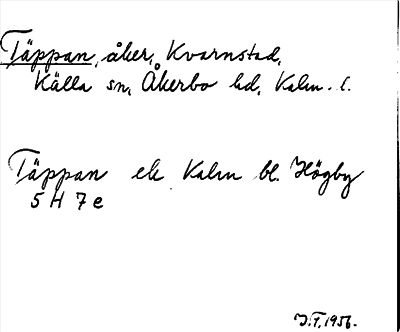 Täppan, åker, Kvarnstad,
Källa sn, Åkerbo hd, Kalm. l.
Täppan ek Kalm bl. Högby
5 H 7 e
J.F. 1956.